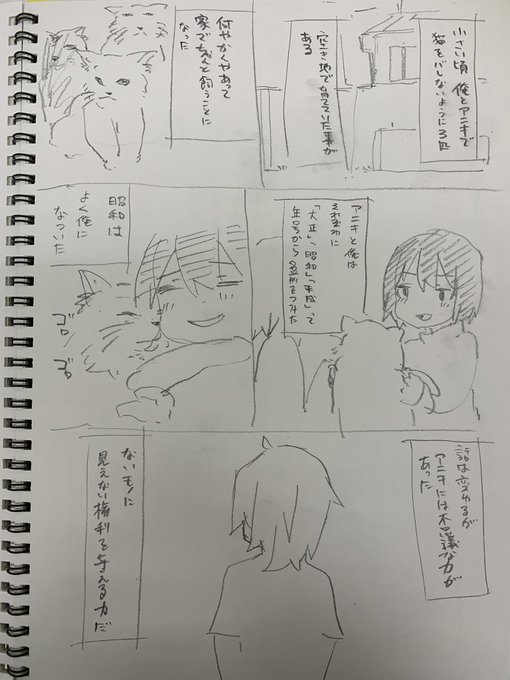 小さい頃 俺とアニキで
猫をバレないように3匹
空き地で育てていた事が
ある
何やかくやあって
家でちゃんと飼うことに
なった
アニキと俺は
それぞれに
「大正」、「昭和」「平成」って
年号から名前をつけた
昭和は
よく俺に
なついた
ゴロ
ゴロ
話は変わるが
アニキには不思議な力が
あった
ないモノに
見えない権利を与える力だ